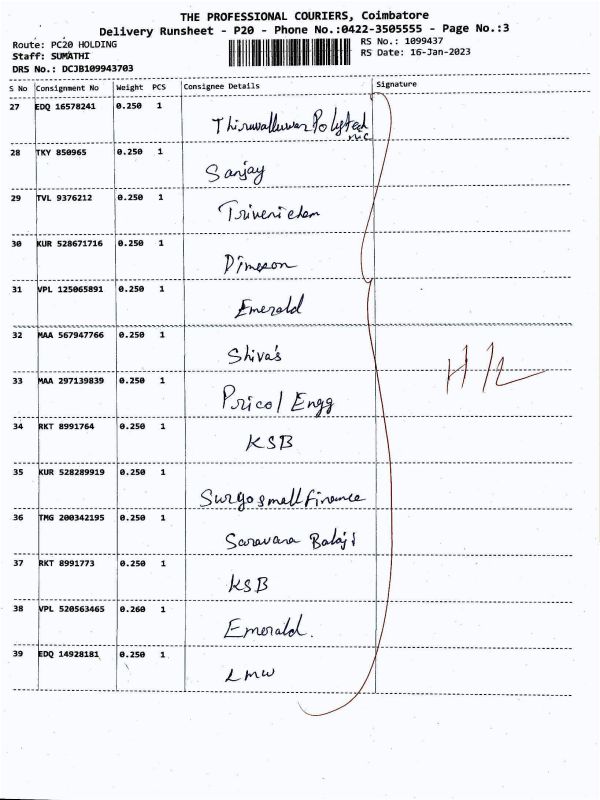 THE PROFESSIONAL COURIERS, Coimbatore
Delivery Runsheet - P20 - Phone No.:0422-3505555 - Page No.:3
Route: PC20 HOLDING
RS No.: 1099437
Staff: SUMATHI
RS Date: 16-Jan-2023
DRS No.: DCJB109943703
S No Consignment No Weight PCS Consignee Details Signature
27 EDQ 16578241 0.250 1
Thiruvalluvar Polytech
nic
28 TKY 850965 0.250 1
Sanjay
29 TVL 9376212 0.250 1
Triveni chem
30 KUR 528671716 0.250 1
Dimeson
31 VPL 125065891 0.250 1
Emerald
32 MAA 567947766 0.250 1
Shiva's
33 MAA 297139839 0.250 1
Pricol Engg
34 RKT 8991764 0.250 1
KSB
35 KUR 528289919 0.250 1
Suryo small Finance
36 TMG 200342195 0.250 1
Saravana Balaji
37 RKT 8991773 0.250 1
KSB
38 VPL 520563465 0.260 1
Emerald.
39 EDQ 14928181 0.250 1
LMW